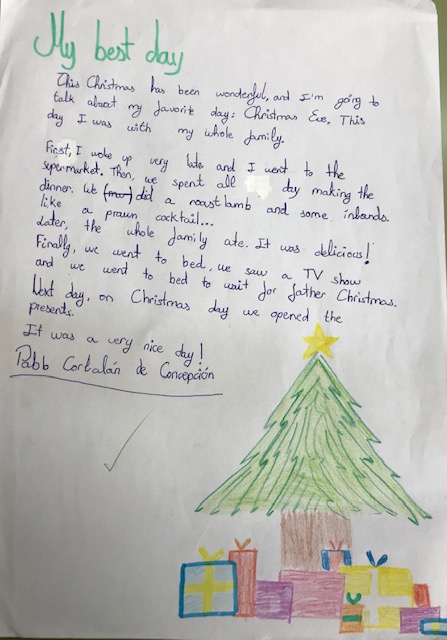 My best day
This Christmas has been wonderful, and I'm going to
talk about my favorite day: Christmas Eve. This
day I was with my whole family.
First, I woke up very late and I went to the
supermarket. Then, we spent all day making the
dinner. We did a roast lamb and some inbands.
like a prawn cocktail...
Later, the whole family ate. It was delicious!
Finally, we went to bed, we saw a TV show
and we went to bed to wait for father Christmas.
Next day, on Christmas day we opened the
presents.
It was a very nice day!
Pablo Corbalán de Concepción